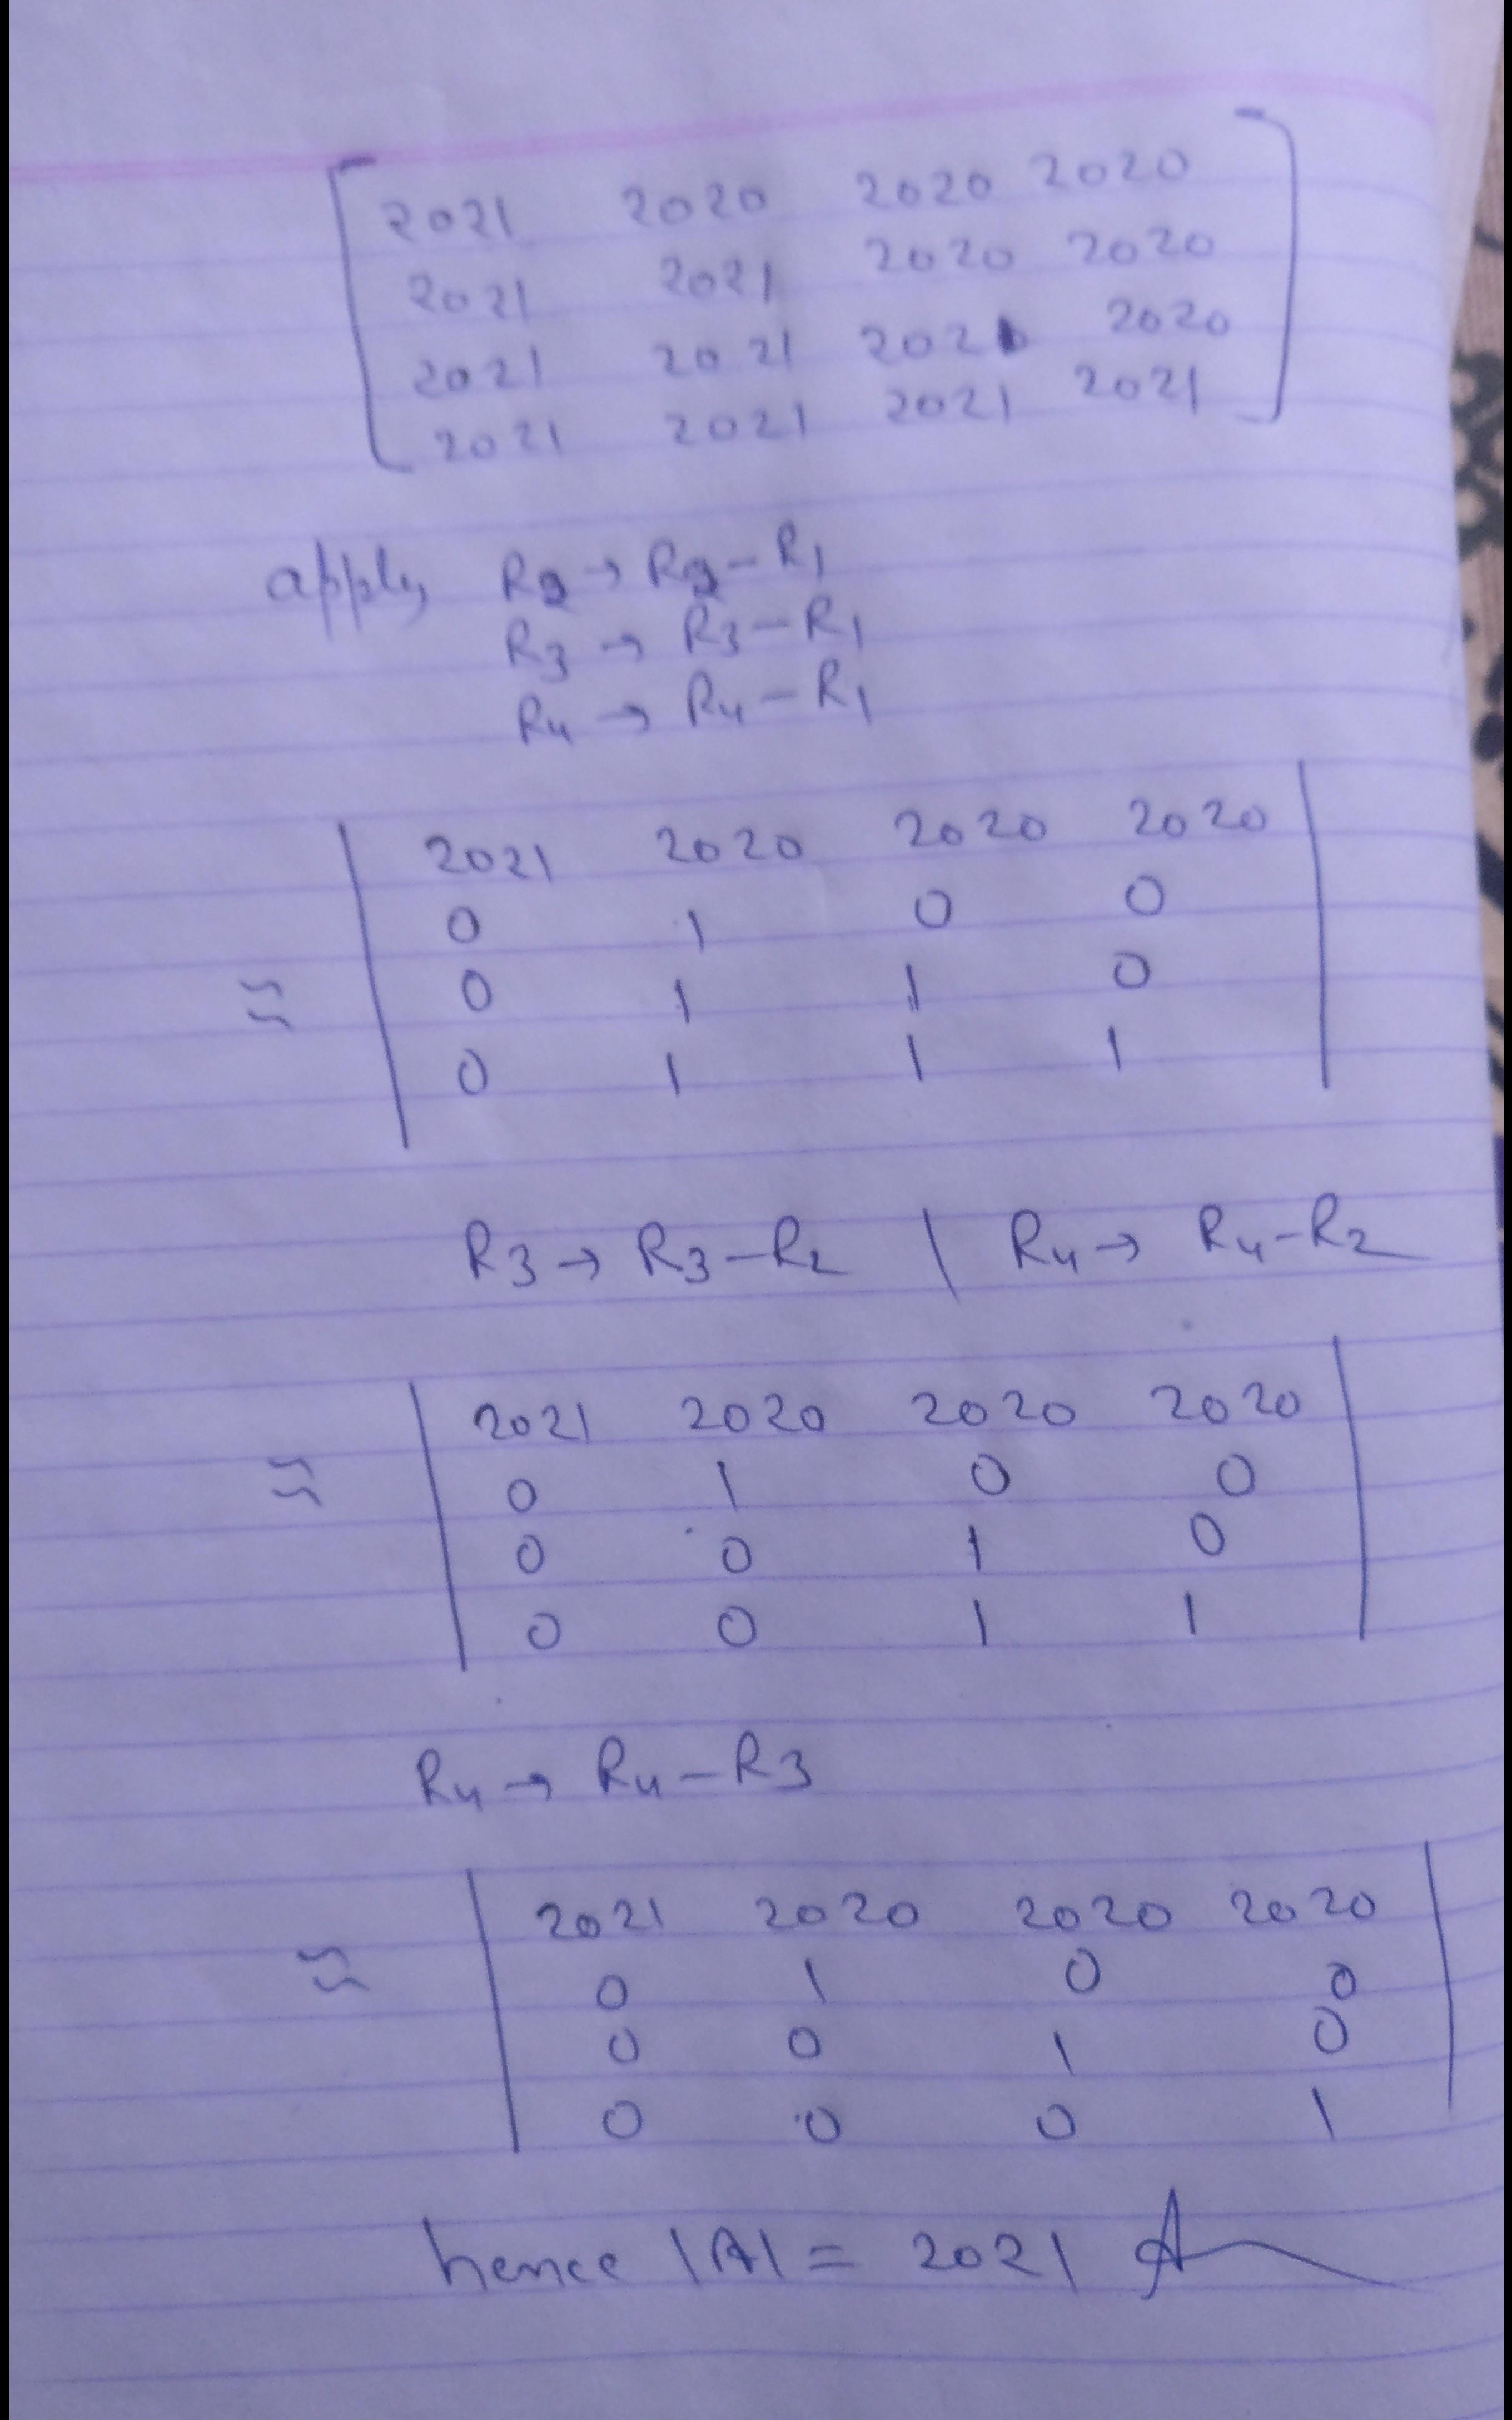 2021 2020 2020 2020
2021 2021 2020 2020
2021 2021 2021 2020
2021 2021 2021 2021
apply R2 → R2 - R1
R3 → R3 - R1
R4 → R4 - R1
2021 2020 2020 2020
0 1 0 0
≈ 0 1 1 0
0 1 1 1
R3 → R3 - R2 | R4 → R4 - R2
2021 2020 2020 2020
≈ 0 1 0 0
0 0 1 0
0 0 1 1
R4 → R4 - R3
2021 2020 2020 2020
≈ 0 1 0 0
0 0 1 0
0 0 0 1
hence |A| = 2021